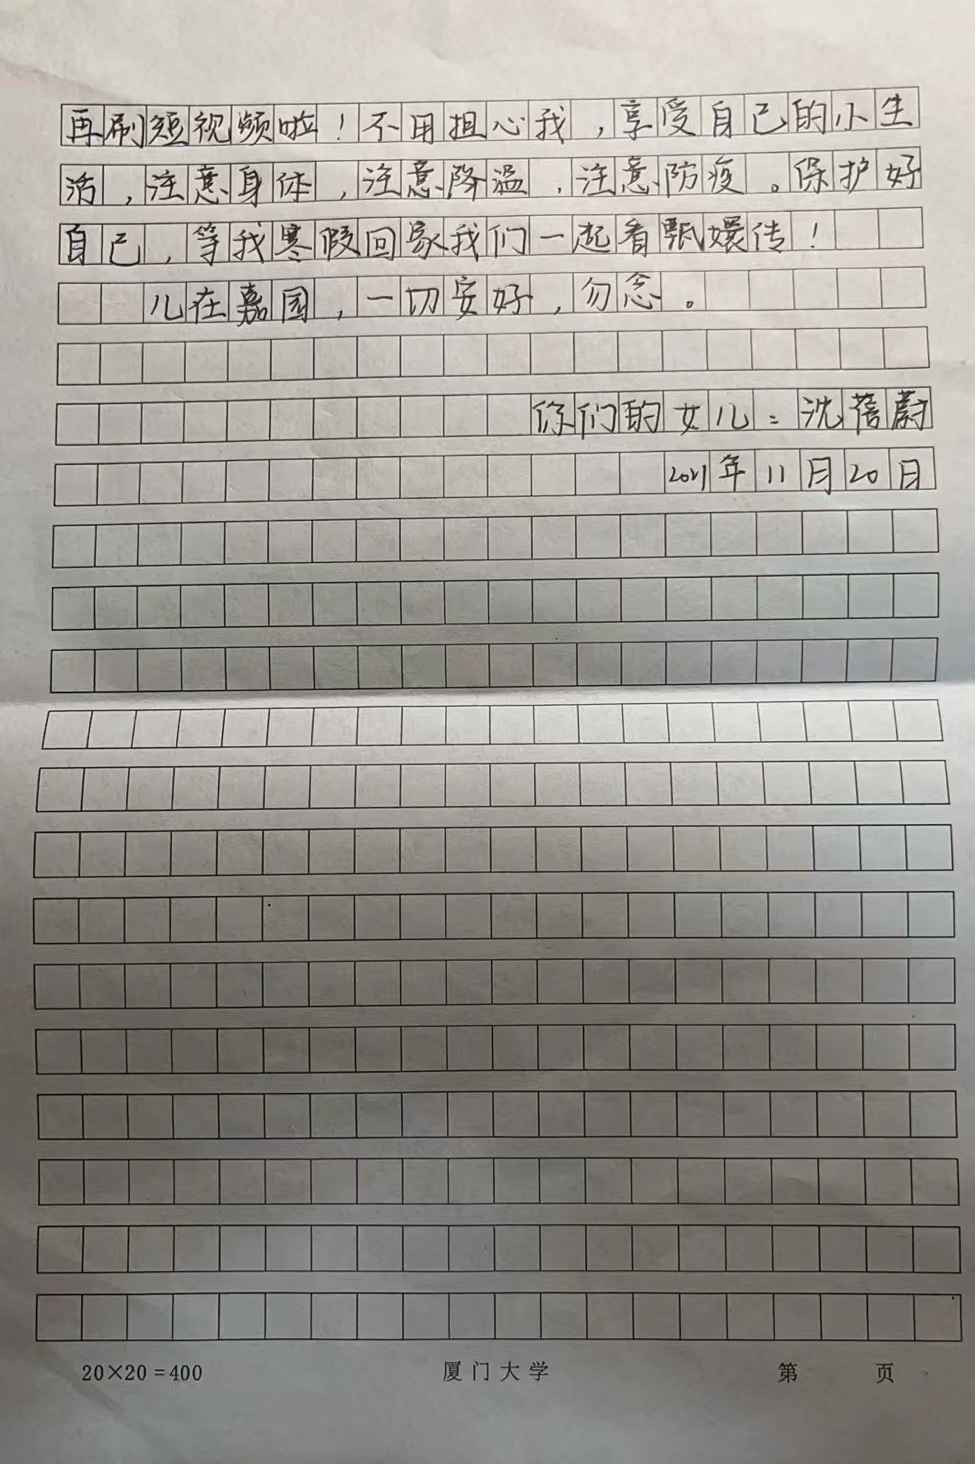 再刷短视频啦！不用担心我，享受自己的小生
活，注意身体，注意降温，注意防疫。保护好
自己，等我寒假回家我们一起看甄嬛传！
儿在嘉园，一切安好，勿念。
你们的女儿：沈蓓蔚
2021年11月20日
20×20=400 厦门大学 第 页